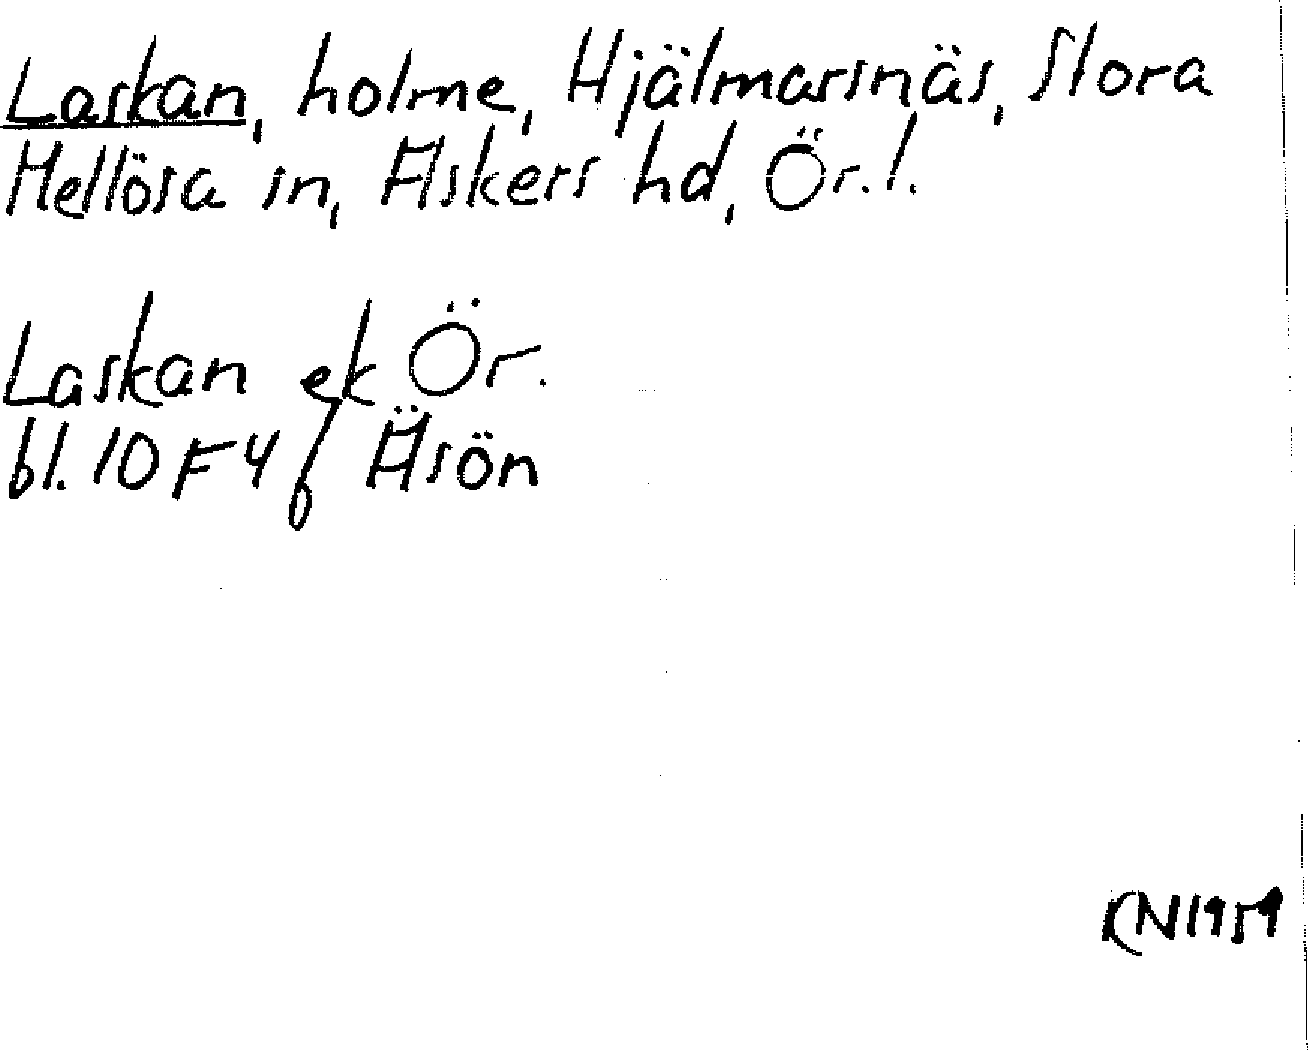 Laskan, holme, Hjälmarsnäs, Stora
Mellösa sn, Askers hd, Ör. l.
Laskan ek Ör.
bl. 10 F 4 f Äsön
KN 1959